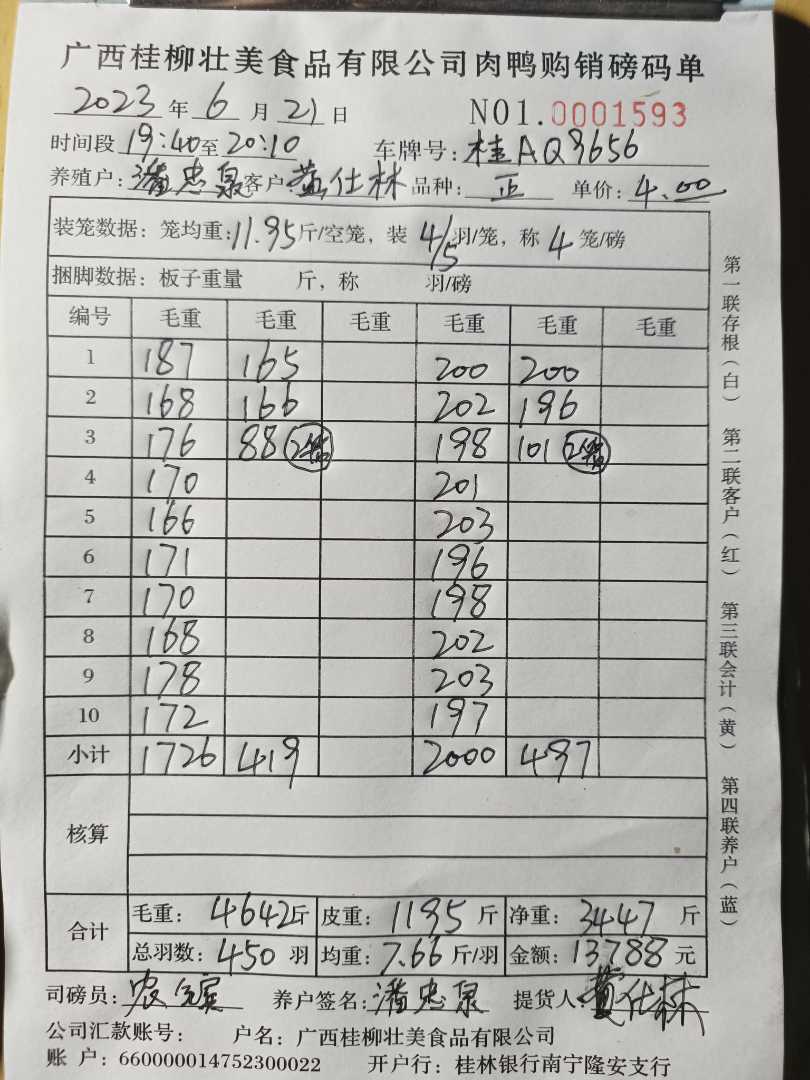 广西桂柳壮美食品有限公司肉鸭购销磅码单
2023 年 6 月 21 日 NO1.0001593
时间段 19:40 至 20:10 车牌号: 桂AQ9656
养殖户: 潘忠泉 客户: 黄仕林 品种: 正 单价: 4.00
装笼数据: 笼均重: 11.95 斤/空笼, 装 4/5 羽/笼, 称 4 笼/磅
捆脚数据: 板子重量 斤, 称 羽/磅
编号 毛重 毛重 毛重 毛重 毛重 毛重
1 187 165 200 200
2 168 166 202 196
3 176 88 2笼 198 101 2笼
4 170 201
5 166 203
6 171 196
7 170 198
8 168 202
9 178 203
10 172 197
小计 1726 419 2000 497
核算
合计 毛重: 4642 斤 皮重: 1195 斤 净重: 3447 斤
总羽数: 450 羽 均重: 7.66 斤/羽 金额: 13788 元
司磅员: 农 养户签名: 潘忠泉 提货人: 黄仕林
公司汇款账号: 户名: 广西桂柳壮美食品有限公司
账 户: 660000014752300022 开户行: 桂林银行南宁隆安支行
第一联存根(白) 第二联客户(红) 第三联会计(黄) 第四联养户(蓝)